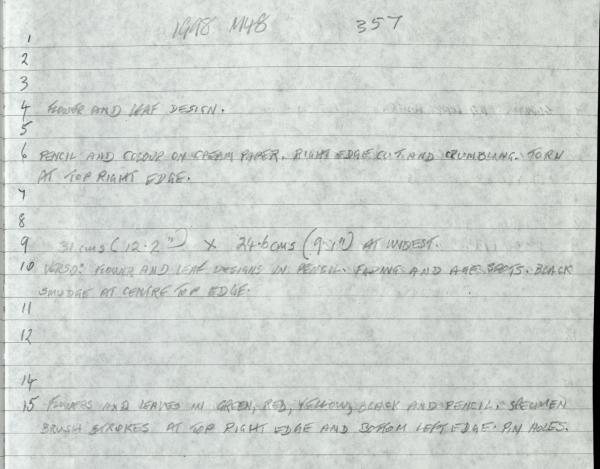 1998 M48 357
1
2
3
4 FLOWER AND LEAF DESIGN.
5
6 PENCIL AND COLOUR ON CREAM PAPER. RIGHT EDGE CUT AND CRUMBLING. TORN
AT TOP RIGHT EDGE.
7
8
9 31 cms (12.2") X 24.6 cms (9.7") AT WIDEST.
10 VERSO: FLOWER AND LEAF DESIGNS IN PENCIL. FADING AND AGE SPOTS. BLACK
SMUDGE AT CENTRE TOP EDGE.
11
12
14
15 FLOWERS AND LEAVES IN GREEN, RED, YELLOW, BLACK AND PENCIL. SPECIMEN
BRUSH STROKES AT TOP RIGHT EDGE AND BOTTOM LEFT EDGE. PIN HOLES.